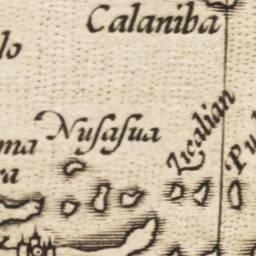 Calaniba
lo
Nuſaſua
Licalian
Pu
ma
ra